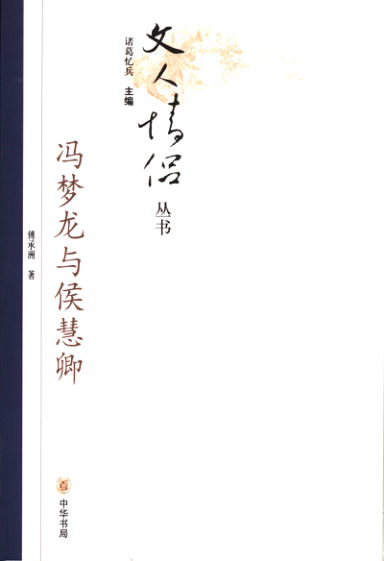 文人情侣
丛书
诸葛忆兵 主编
冯梦龙与侯慧卿
傅承洲 著
中华书局